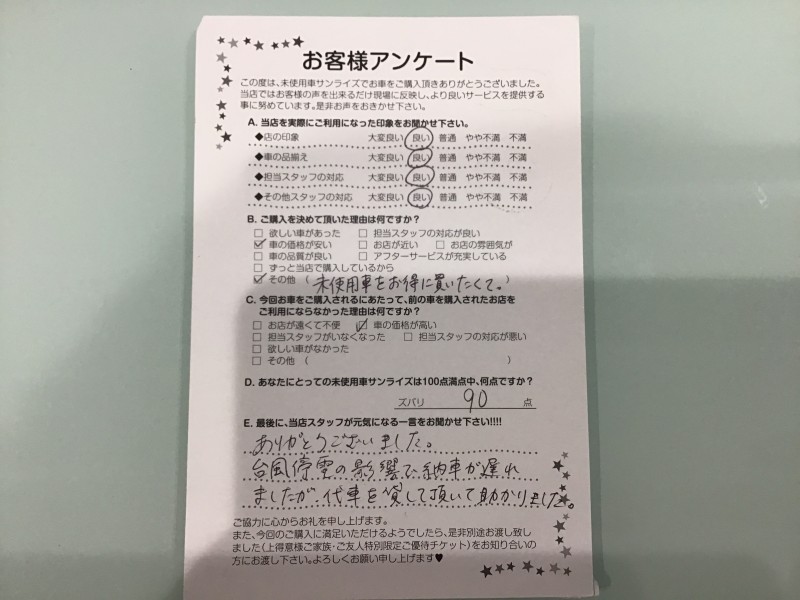 お客様アンケート
この度は、未使用車サンライズでお車をご購入頂きありがとうございました。
当店ではお客様の声を出来るだけ現場に反映し、より良いサービスを提供する
事に努めています。是非お声をおきかせ下さい。
A. 当店を実際にご利用になった印象をお聞かせ下さい。
◆店の印象 大変良い 良い 普通 やや不満 不満
◆車の品揃え 大変良い 良い 普通 やや不満 不満
◆担当スタッフの対応 大変良い 良い 普通 やや不満 不満
◆その他スタッフの対応 大変良い 良い 普通 やや不満 不満
B. ご購入を決めて頂いた理由は何ですか?
□ 欲しい車があった □ 担当スタッフの対応が良い
☑ 車の価格が安い □ お店が近い □ お店の雰囲気が
□ 車の品質が良い □ アフターサービスが充実している
□ ずっと当店で購入しているから
☑ その他 ( 未使用車をお得に買いたくて。 )
C. 今回お車をご購入されるにあたって、前の車を購入されたお店を
ご利用にならなかった理由は何ですか?
□ お店が遠くて不便 ☑ 車の価格が高い
□ 担当スタッフがいなくなった □ 担当スタッフの対応が悪い
□ 欲しい車がなかった
□ その他 ( )
D. あなたにとっての未使用車サンライズは100点満点中、何点ですか?
ズバリ 90 点
E. 最後に、当店スタッフが元気になる一言をお聞かせ下さい!!!!
ありがとうございました。
台風停電の影響で、納車が遅れ
ましたが、代車を貸して頂いて助かりました。
ご協力に心からお礼を申し上げます。
また、今回のご購入に満足いただけるようでしたら、是非別途お渡し致し
ました(上得意様ご家族・ご友人特別限定ご優待チケット)をお知り合いの
方にお渡し下さい。よろしくお願い申し上げます♥